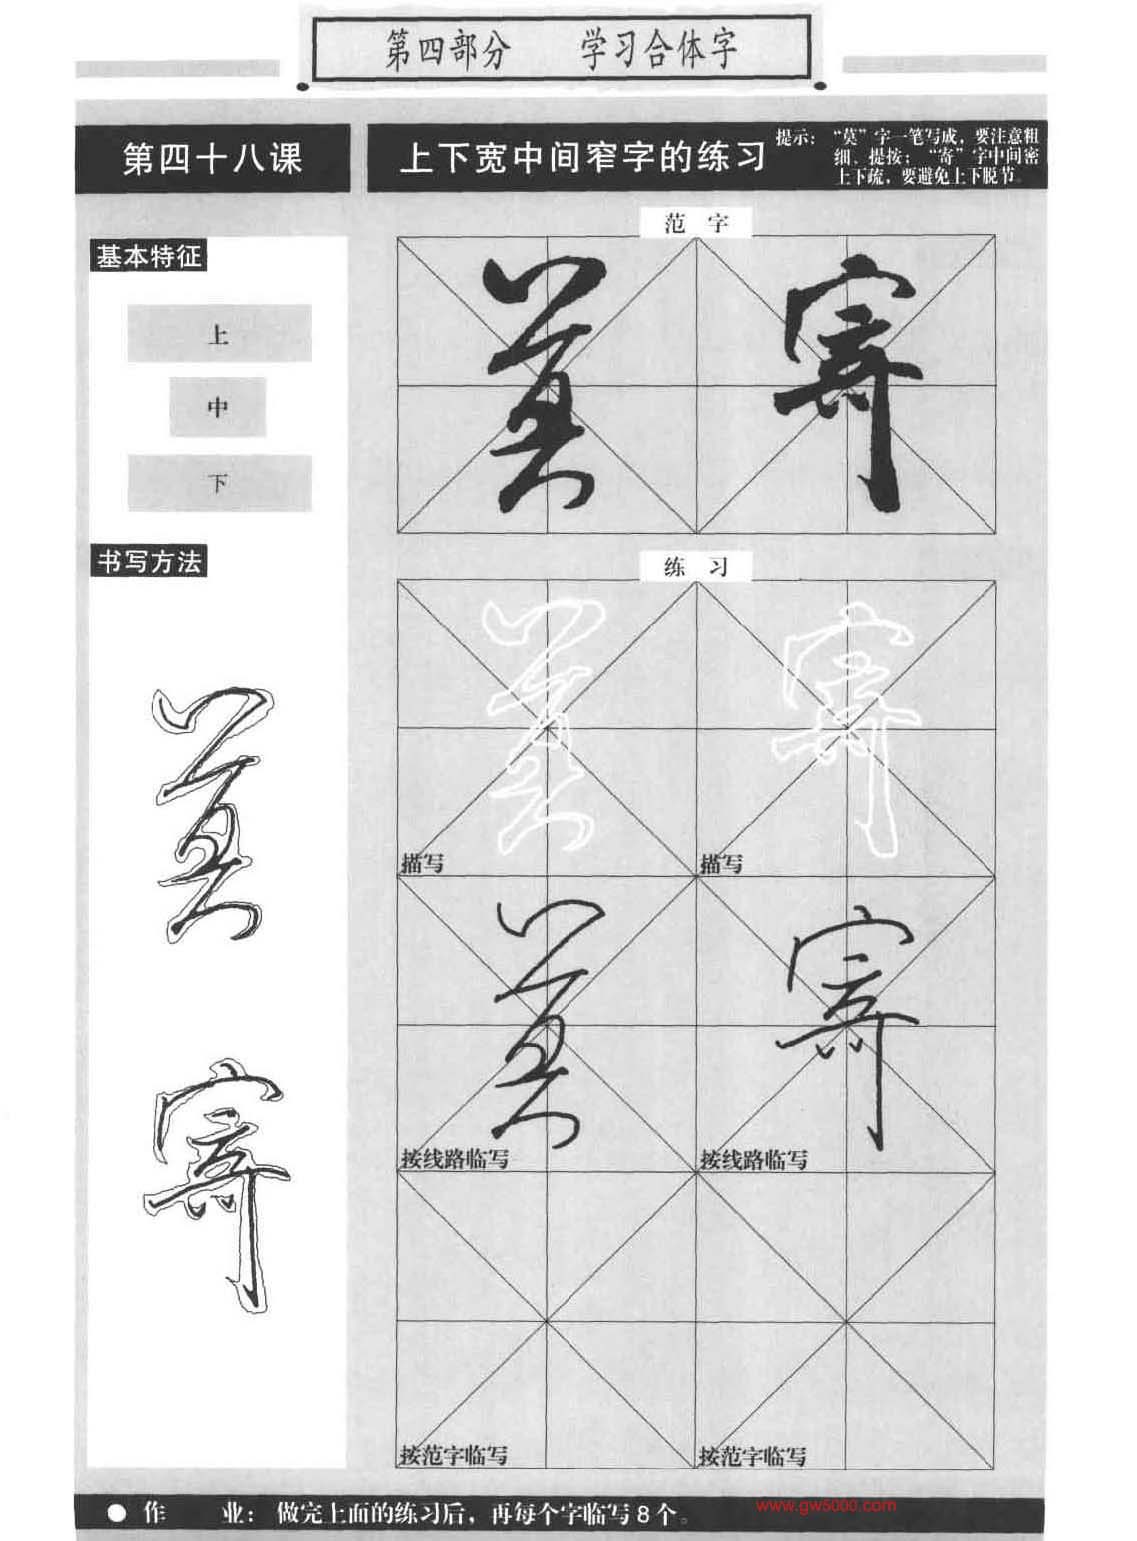 第四部分 学习合体字
第四十八课
上下宽中间窄字的练习
提示： “莫”字一笔写成，要注意粗
细、提按；“寄”字中间密
上下疏，要避免上下脱节。
基本特征
上
中
下
书写方法
莫
寄
范 字
莫 寄
练 习
莫 寄
描写 描写
莫 寄
按线路临写 按线路临写
按范字临写 按范字临写
● 作 业： 做完上面的练习后，再每个字临写8个。
www.gw5000.com